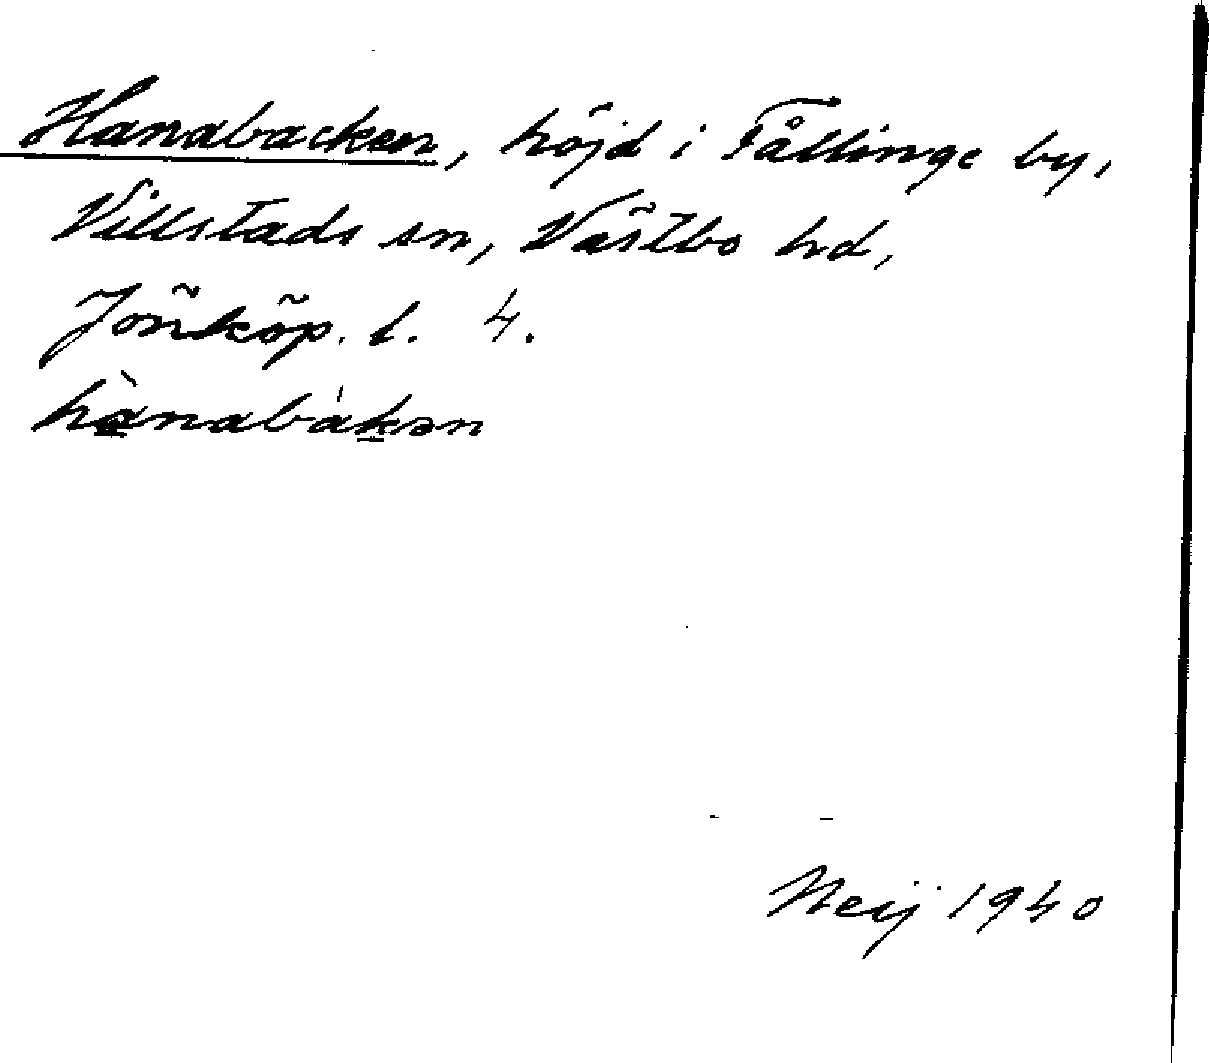 Hanabacken, höjd i Tållinge by,
Villstads sn, Västbo hd,
Jönköp. l. 4.
hànabákən
Neij 1940